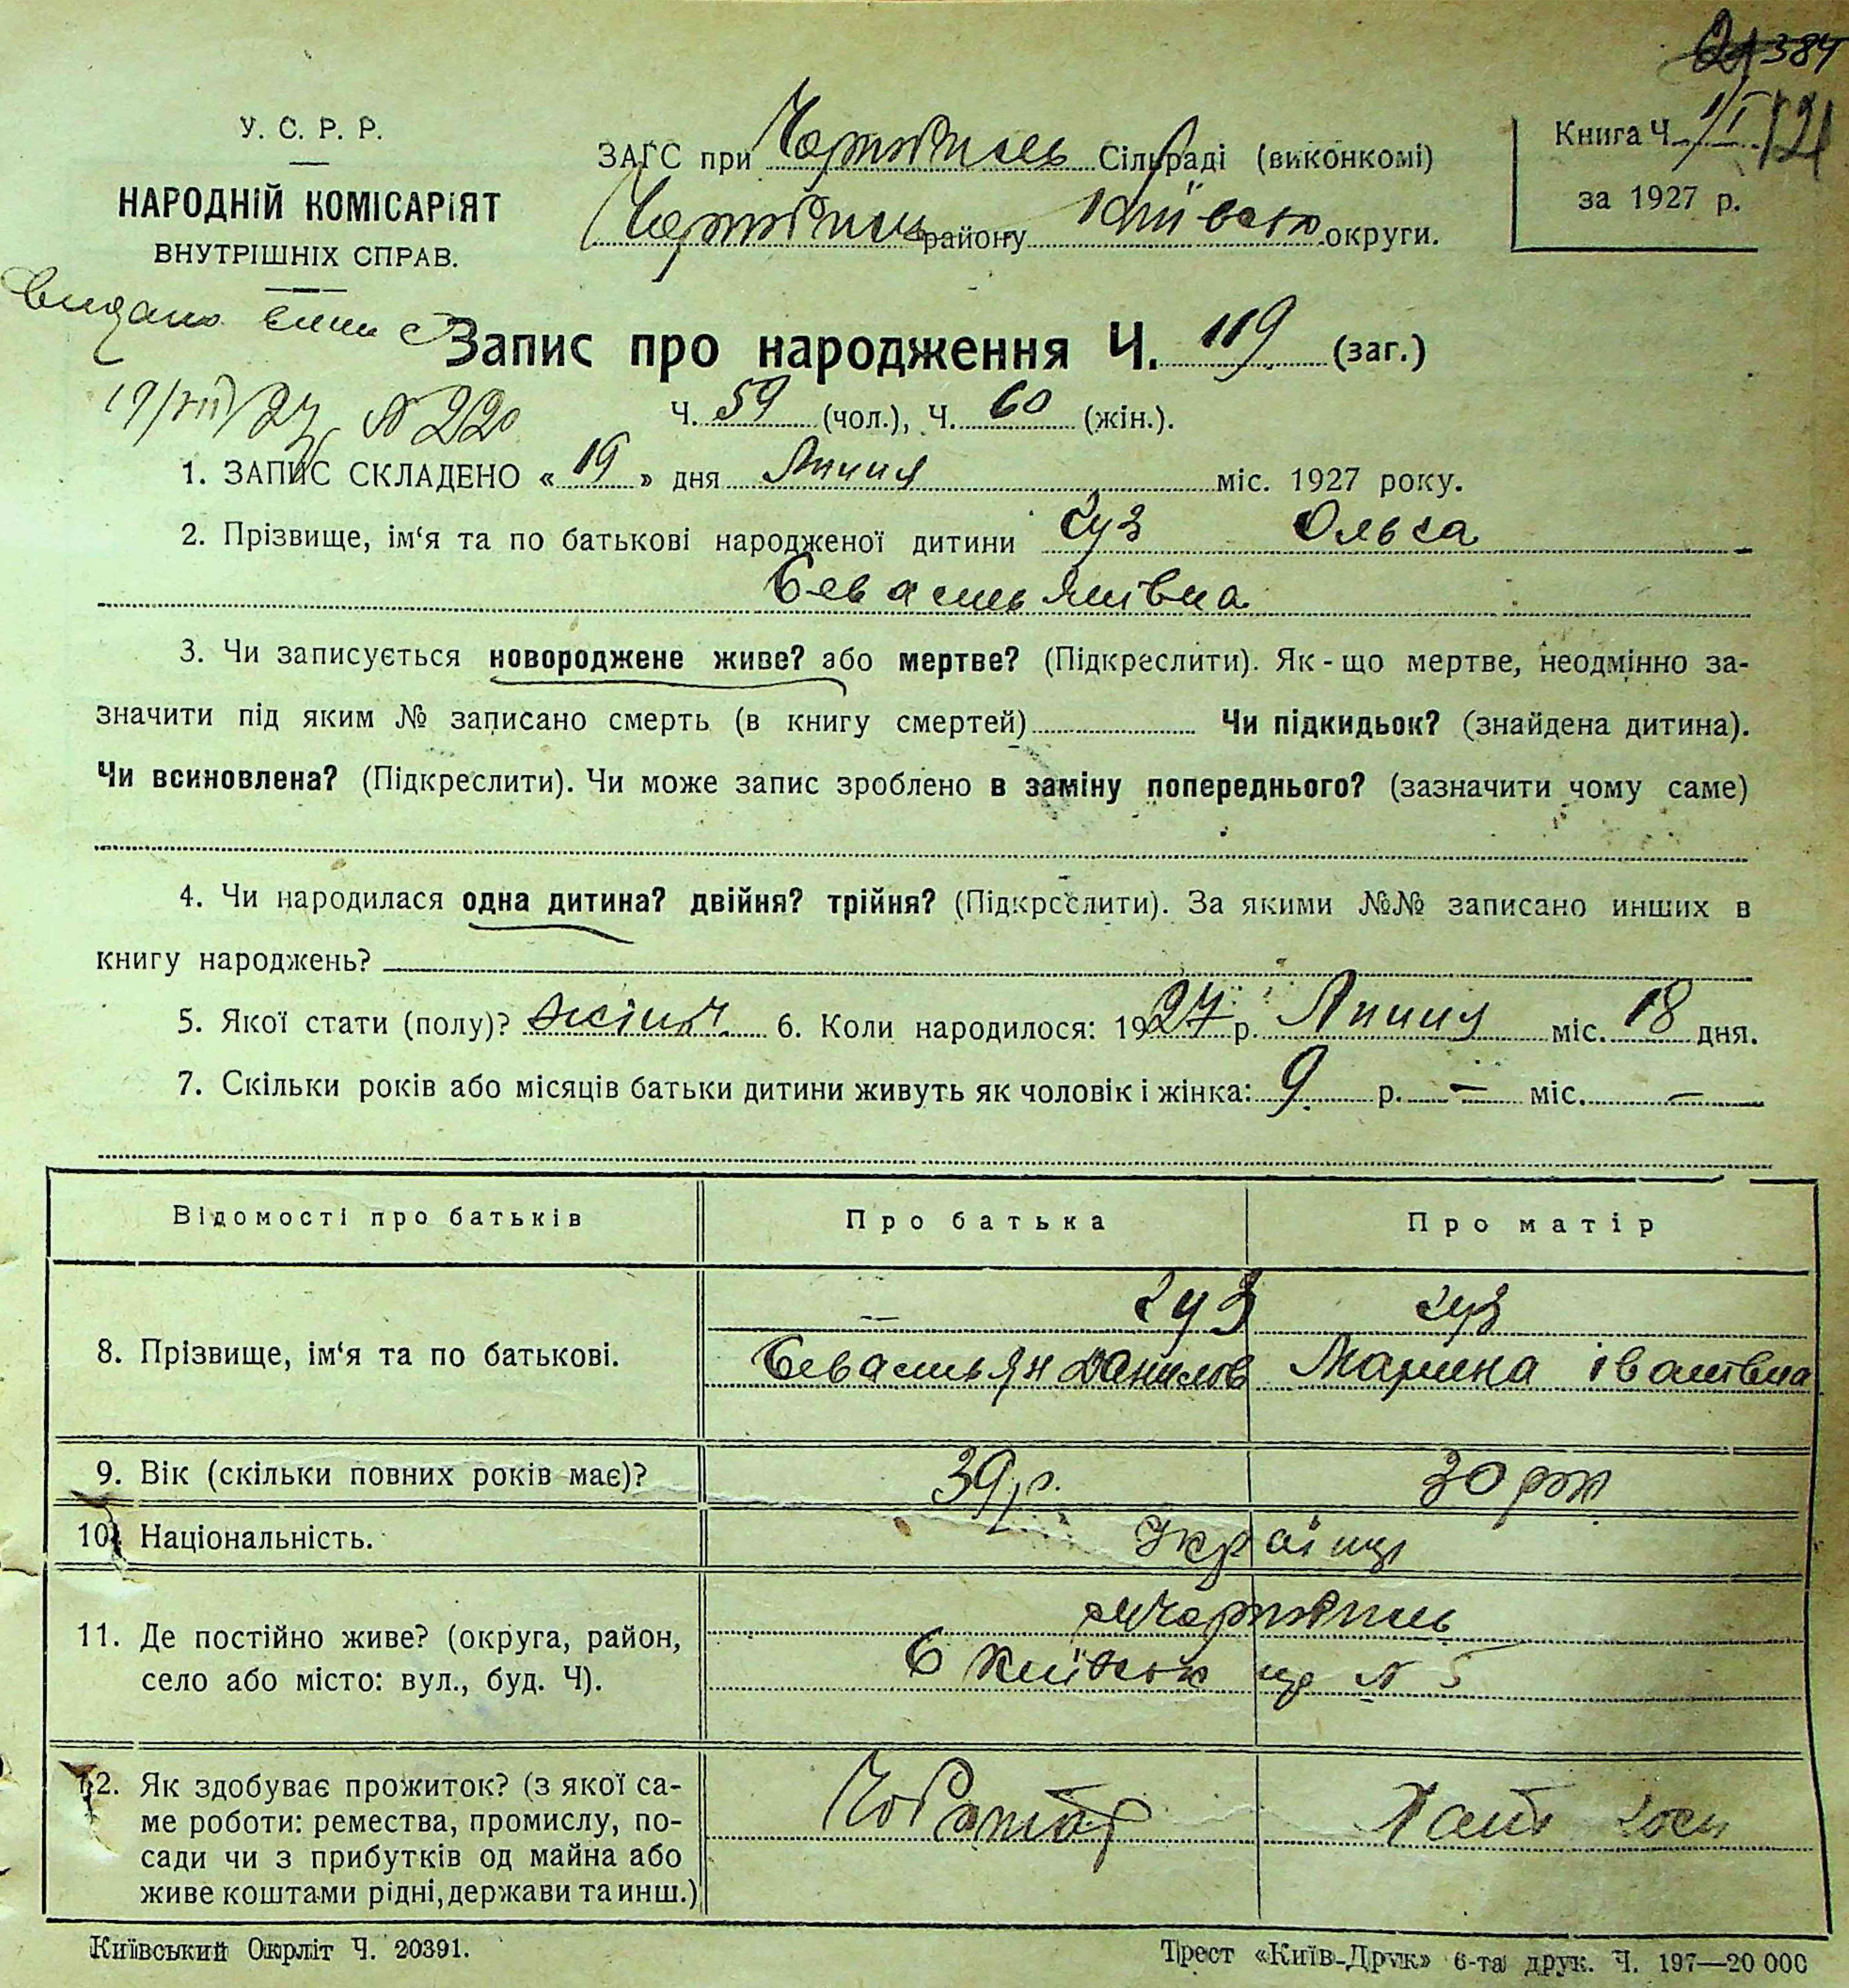 384
У. С. Р. Р.
НАРОДНІЙ КОМІСАРІЯТ
ВНУТРІШНІХ СПРАВ.
ЗАГС при Чорнобиль Сільраді (виконкомі)
Чорнобиль району Київсько округи.
Книга Ч. 1/I
за 1927 р.
видано
Запис про народження Ч. 119 (заг.)
19/VII/27 N 220
Ч. 59 (чол.), Ч. 60 (жін.).
1. ЗАПИС СКЛАДЕНО « 19 » дня Липня міс. 1927 року.
2. Прізвище, ім‘я та по батькові народженої дитини Гуз Ольга
Севастьянівна
3. Чи записується новороджене живе? або мертве? (Підкреслити). Як-що мертве, неодмінно за-
значити під яким № записано смерть (в книгу смертей) Чи підкидьок? (знайдена дитина).
Чи всиновлена? (Підкреслити). Чи може запис зроблено в заміну попереднього? (зазначити чому саме)
4. Чи народилася одна дитина? двійня? трійня? (Підкреслити). За якими №№ записано инших в
книгу народжень?
5. Якої стати (полу)? жіноч 6. Коли народилося: 1927 р. Липня міс. 18 дня.
7. Скільки років або місяців батьки дитини живуть як чоловік і жінка: 9 р. — міс. —
Відомості про батьків Про батька Про матір
8. Прізвище, ім‘я та по батькові. — Гуз Гуз
Севастьян Данилов Марина Іванівна
9. Вік (скільки повних років має)? 39 р. 30 рок
10. Національність. Україці
11. Де постійно живе? (округа, район, м Чорнобиль
село або місто: вул., буд. Ч). Київськ N 5
12. Як здобуває прожиток? (з якої са- Чоботар Хатн госп
ме роботи: ремества, промислу, по-
сади чи з прибутків од майна або
живе коштами рідні, держави та инш.)
Київський Окрліт Ч. 20391.
Трест «Київ-Друк» 6-та друк. Ч. 197—20 000